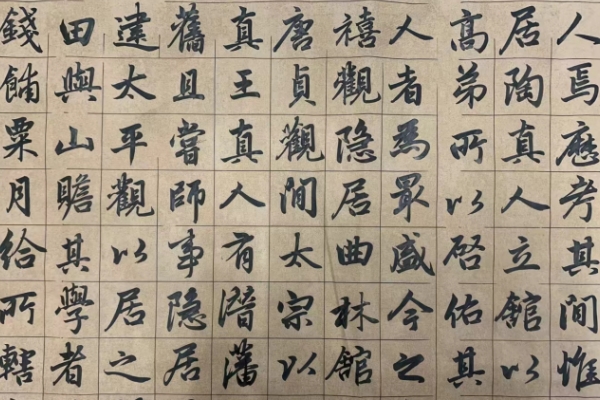 人焉歷考其間惟
居陶真人立館以
高弟所以啓佑其
人者為眾盛今之
禧觀隐居曲林館
唐貞觀間太宗以
真王真人有潛藩
舊且嘗師事隐居
建太平觀以居之
田與山贍其學者
錢餔粟月給所轄